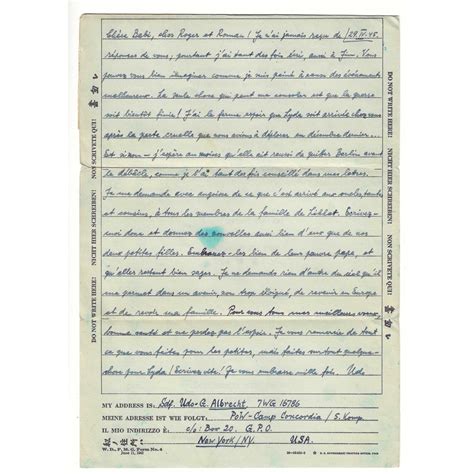 Chère Babi, chers Roger et Roman! Je n'ai jamais reçu de 29.IV.45.
réponses de vous, pourtant j'ai tant des fois écrit, aussi à Jim. Vous
pouvez vous bien imaginer comme je suis peiné à cause des événements
malheureux. La seule chose qui peut me consoler est que la guerre
soit bientôt finie! J'ai la ferme espoir que Lyda soit arrivée chez vous
après la perte cruelle que nous avions à déplorer en décembre dernier.
Et si non - j'espère au moins qu'elle ait réussi de quitter Berlin avant
la débâcle, comme je l'ai tant des fois conseillé dans mes lettres.
Je me demande avec angoisse de ce que c'est arrivé aux oncles, tantes
et cousins, à tous les membres de la famille de Lillot. Ecrivez-
moi donc et donnez des nouvelles aussi bien d'eux que de vos
deux petites filles. Embrassez-les bien de leur pauvre papa, et
qu'elles restent bien sages. Je ne demande rien d'autre du ciel qu'il
me permet dans un avenir, non trop éloigné, de revenir en Europe
et de revoir ma famille. Pour vous tous mes meilleurs vœux,
bonne santé et ne perdez pas l'espoir. Je vous remercie de tout
ce que vous faites pour les petites, mais faites surtout quelque-
chose pour Lyda! Ecrivez vite! Je vous embrasse mille fois. Udo
DO NOT WRITE HERE! NICHT HIER SCHREIBEN! NON SCRIVETE QUI!
DO NOT WRITE HERE! NICHT HIER SCHREIBEN! NON SCRIVETE QUI!
MY ADDRESS IS: Sdf. Udo-G. Albrecht, 7WG 16786
MEINE ADRESSE IST WIE FOLGT: PoW-Camp Concordia / 5. Komp.
IL MIO INDIRIZZO È: c/o: Box 20, G.P.O.
New York / NY. USA.
W. D., P. M. G. Form No. 4
U. S. GOVERNMENT PRINTING OFFICE